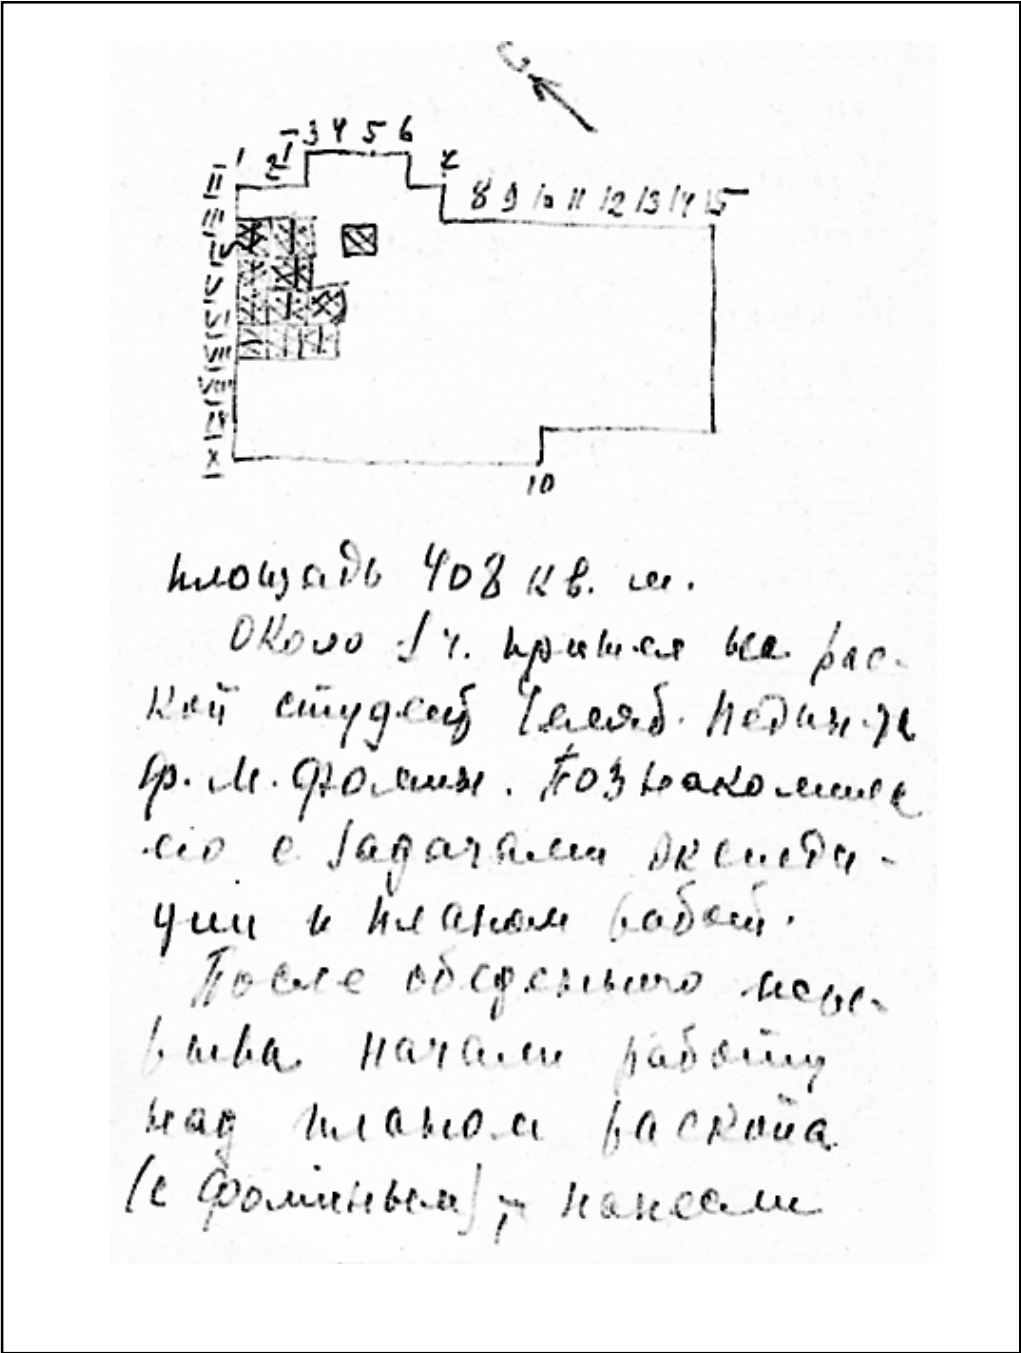 С
3 4 5 6
I
1 2 7
II 8 9 10 11 12 13 14 15
III
IV
V
VI
VII
VIII
IX
X
10
площадь 408 кв. м.
Около 1 ч. пришел на рас-
коп студент Челяб. пединс-та
Ф. М. Фомин. Познакомил
его с задачами экспеди-
ции и планом работ.
После обеденного пере-
рыва начали работу
над планом раскопа
(с Фоминым), нанесли